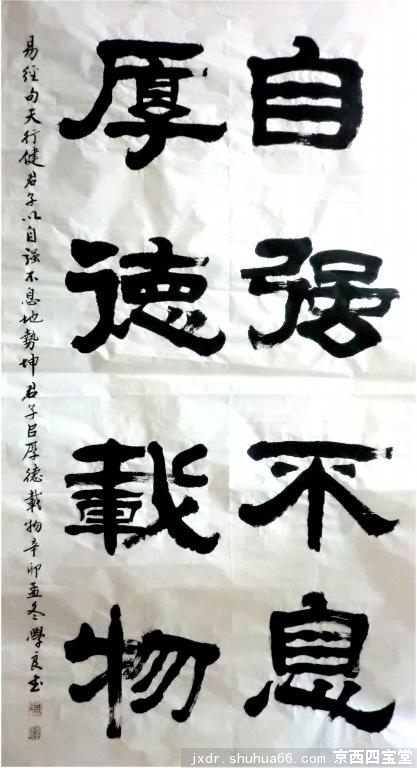 自强不息
厚德载物
易經句天行健君子以自强不息地勢坤君子㠯厚德載物辛卯孟冬學良书
jxdr.shuhua66.com 京西四宝堂